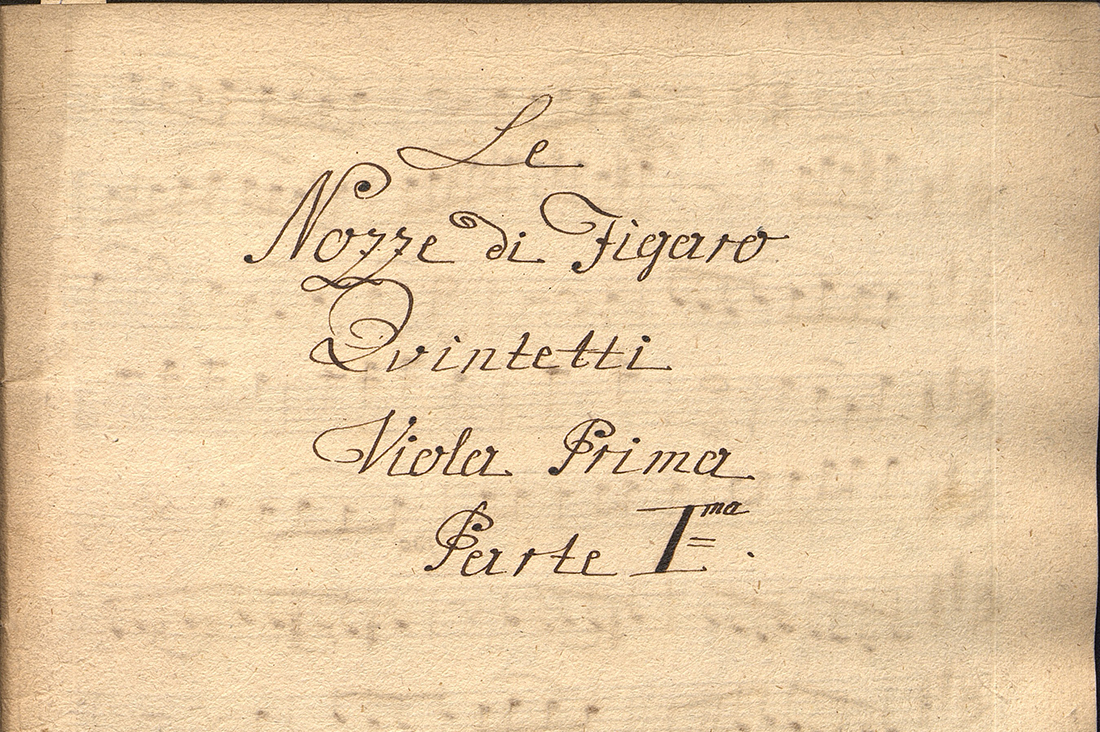 Le
Nozze di Figaro
Qvintetti
Viola Prima
Parte I^ma=.